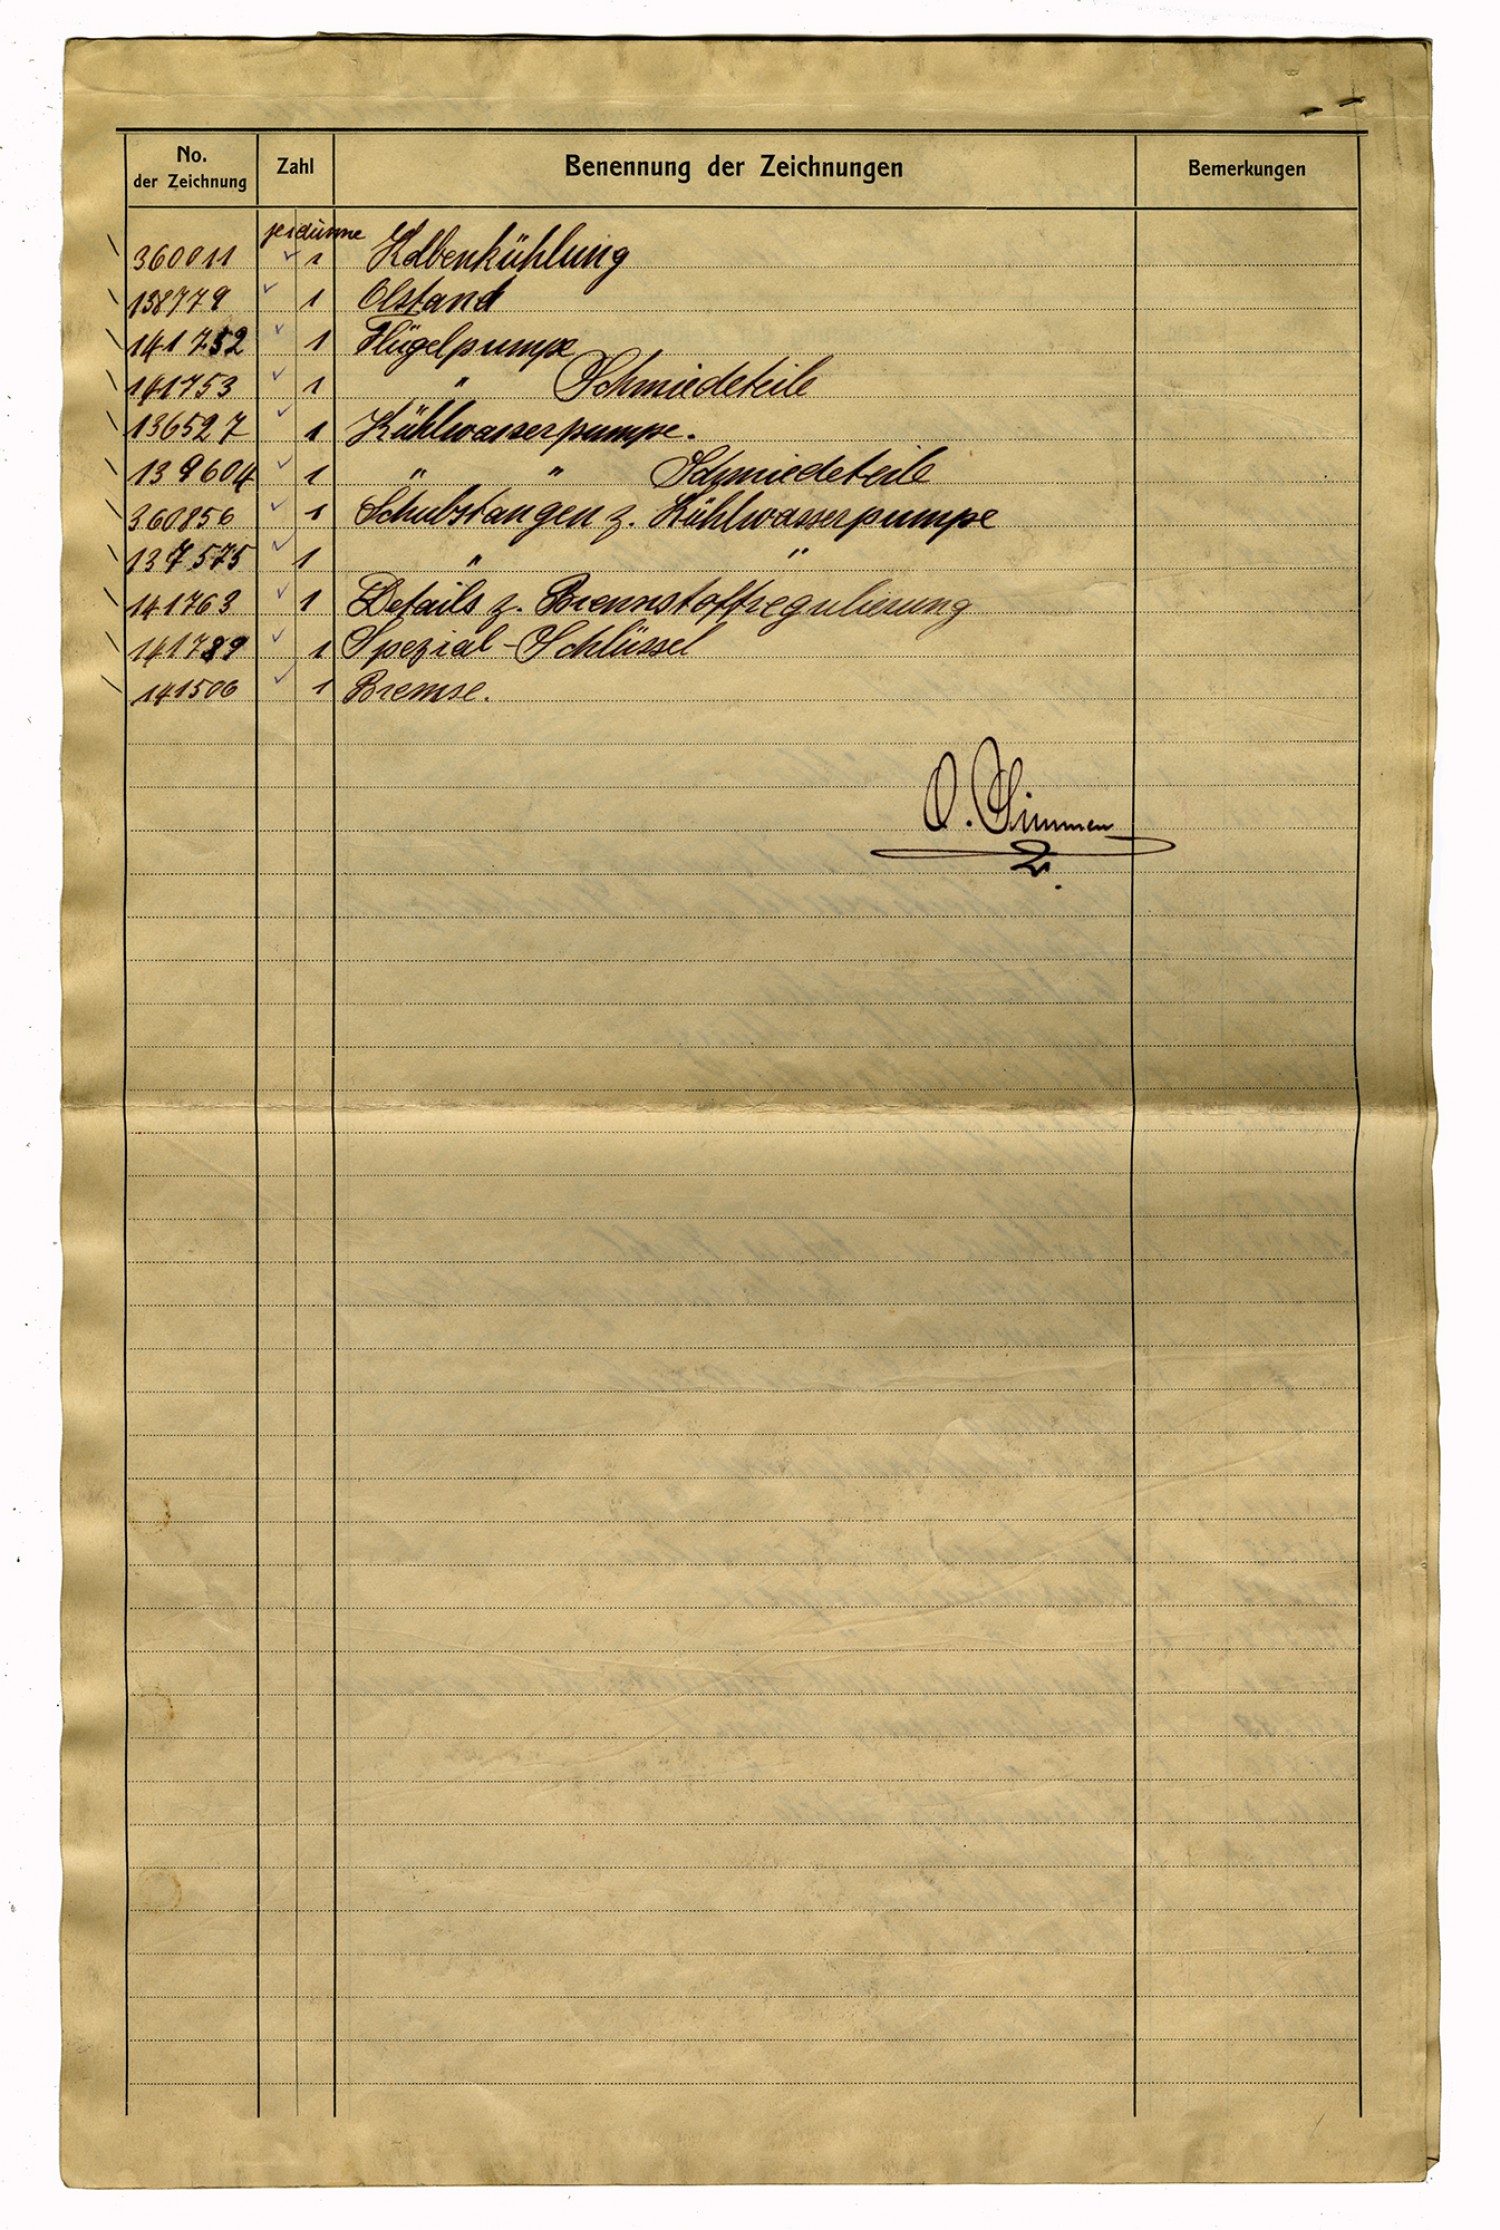 No. der Zeichnung Zahl Benennung der Zeichnungen Bemerkungen
dünne
360011 1 Kolbenkühlung
138779 1 Ölstand
141752 1 Flügelpumpe
141753 1 " Schmiedeteile
136527 1 Kühlwasserpumpe.
139604 1 " " Schmiedeteile
360856 1 Schubstangen z. Kühlwasserpumpe
137575 1 " "
141763 1 Details z. Brennstoffregulierung
141789 1 Spezial-Schlüssel
141506 1 Bremse.
O. Simmen